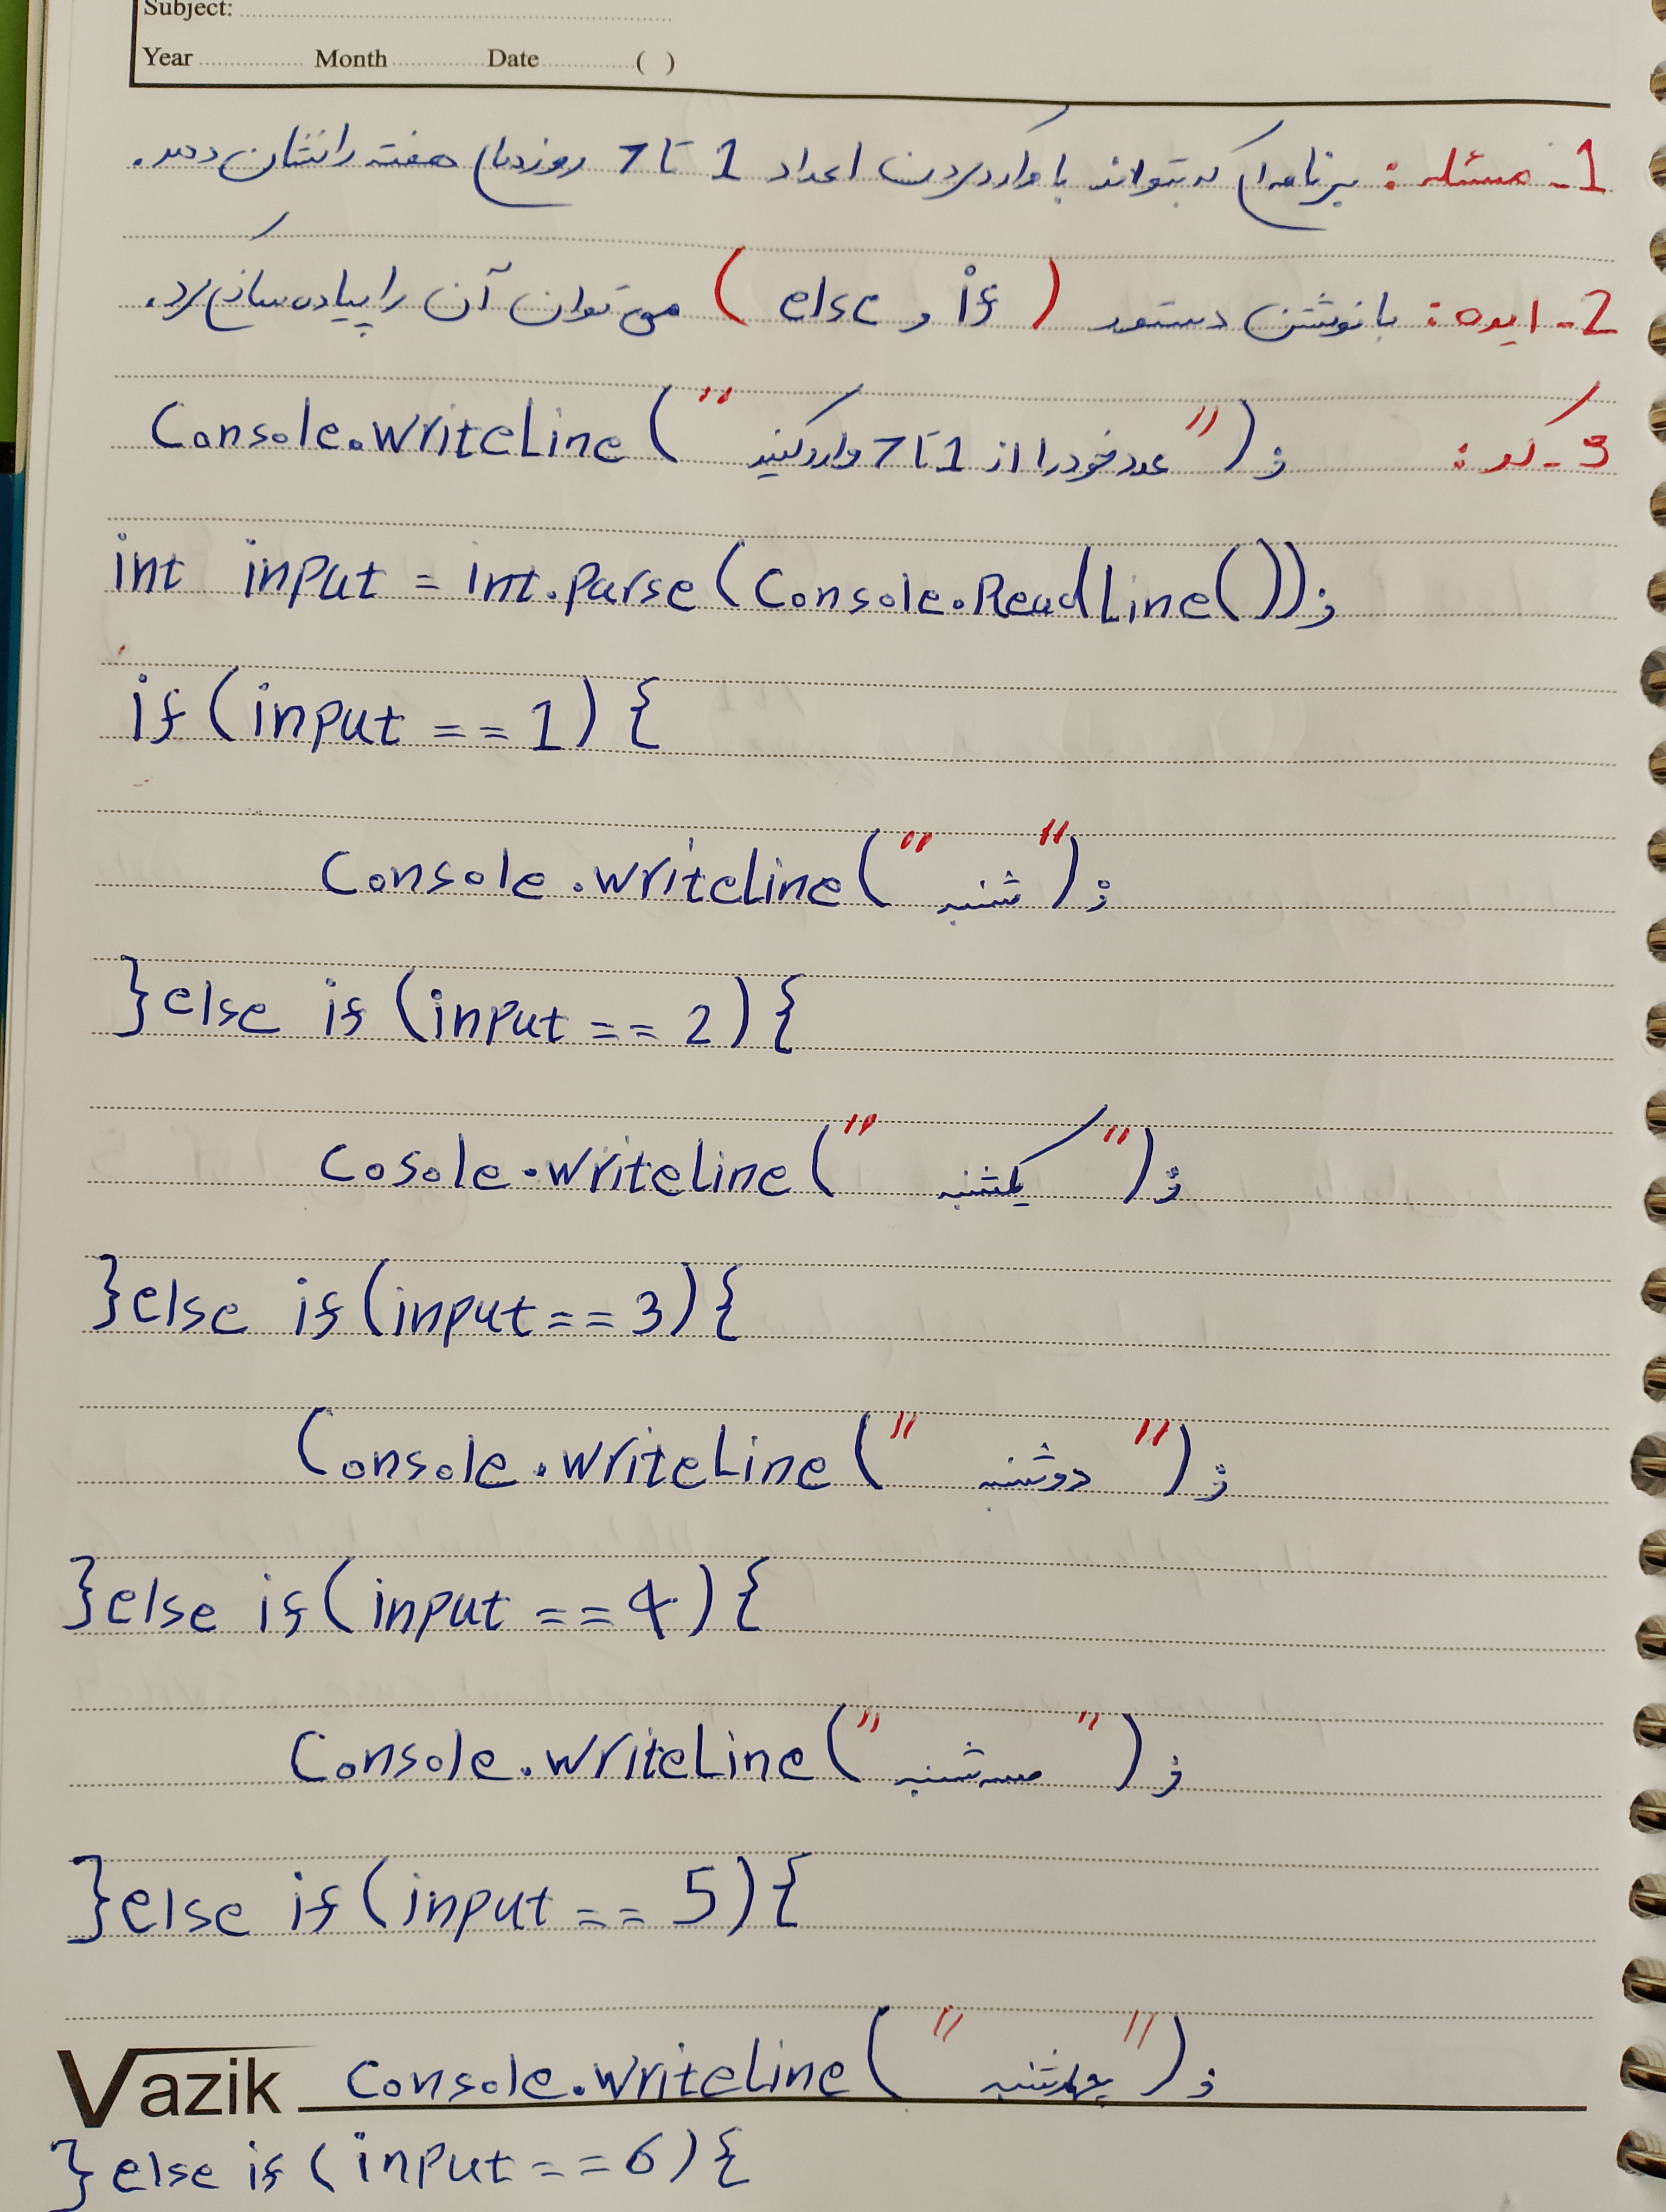 Subject:
Year Month Date ( )
1- مسئله: برنامه ای که بتواند با وارد کردن اعداد 1 تا 7 روزهای هفته را نشان دهد.
2- ایده: با نوشتن دستور (if و else) می توان آن را پیاده سازی کرد.
3- کد: Console.writeLine("عدد خود را از 1 تا 7 وارد کنید");
int input = int.parse(Console.ReadLine());
if (input == 1) {
Console.writeLine("شنبه");
} else if (input == 2) {
Cosole.writeline("یکشنبه");
} else if (input == 3) {
Console.writeLine("دوشنبه");
} else if (input == 4) {
Console.writeLine("سه شنبه");
} else if (input == 5) {
Vazik Console.writeline("چهارشنبه");
} else if (input == 6) {